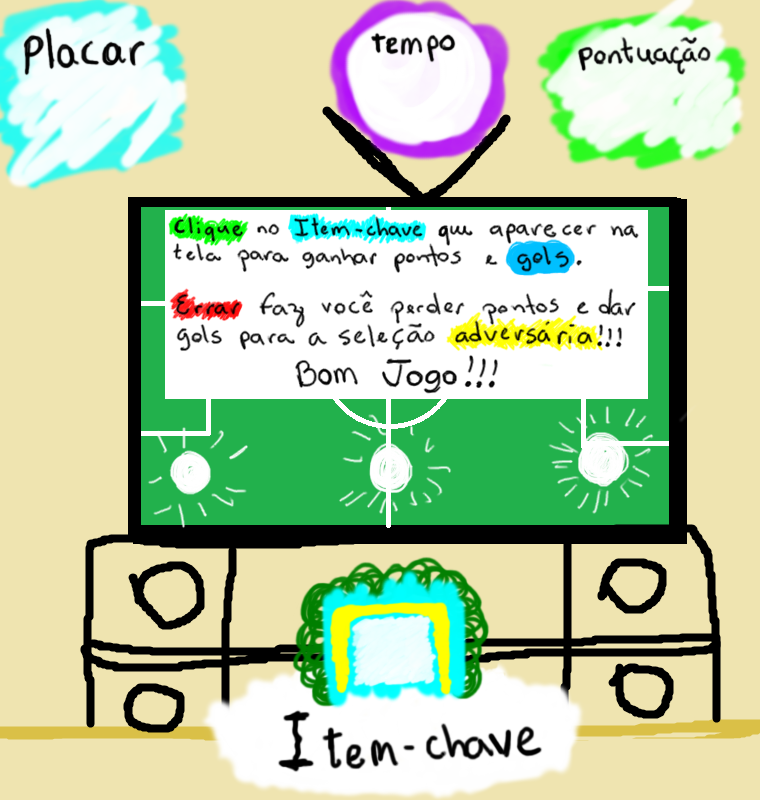 Placar
tempo
pontuação
Clique no Item-chave que aparecer na
tela para ganhar pontos e gols.
Errar faz você perder pontos e dar
gols para a seleção adversária!!!
Bom Jogo!!!
Item-chave